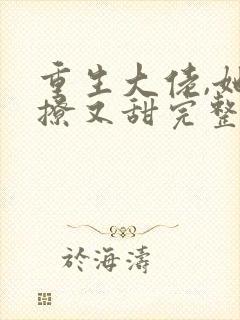 重生大佬,她
撩又甜完整
於海濤